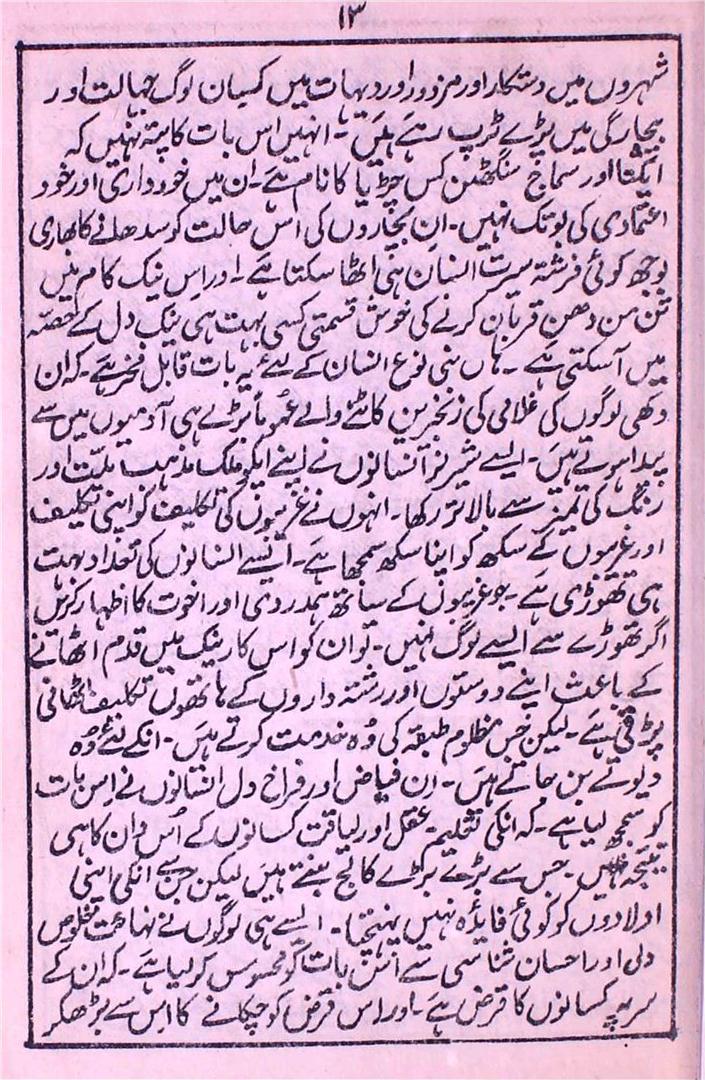 ۱۳
شہروں میں دستکار اور مزدور اور دیہات میں کسان لوگ جہالت اور
بیچارگی میں پڑے تڑپ رہے ہیں۔ انہیں اس بات کا پتہ نہیں کہ
ایکتا اور سماج سنگھٹن کس چڑیا کا نام ہے۔ ان میں خودداری اور خود
اعتمادی کی بو تک نہیں۔ ان بچاروں کی اس حالت کو سدھارنے کا بھاری
بوجھ کوئی فرشتہ سیرت انسان ہی اٹھا سکتا ہے۔ اور اس نیک کام میں
تن من دھن قربان کرنے کی خوش قسمتی کسی بہت ہی نیک دل کے حصّہ
میں آسکتی ہے۔ ہاں بنی نوع انسان کے لئے یہ بات قابل فخر ہے۔ کہ ان
دکھی لوگوں کی غلامی کی زنجیریں کاٹنے والے عموماً بڑے ہی آدمیوں میں سے
پیدا ہوتے ہیں۔ ایسے شیر نر انسانوں نے اپنے آپکو ملک مذہب ملت اور
رنگ کی تمیز سے بالاتر رکھا۔ انہوں نے غریبوں کی تکلیف کو اپنی تکلیف
اور غریبوں کے سکھ کو اپنا سکھ سمجھا ہے۔ ایسے انسانوں کی تعداد بہت
ہی تھوڑی ہے۔ جو غریبوں کے ساتھ ہمدردی اور اخوت کا اظہار کریں
اگر تھوڑے سے ایسے لوگ ہیں۔ تو ان کو اس کار نیک میں قدم اٹھانے
کے باعث اپنے دوستوں اور رشتہ داروں کے ہاتھوں تکلیف اٹھانی
پڑتی ہے۔ لیکن جس مظلوم طبقہ کی وُہ خدمت کرتے ہیں۔ انکے لئے وُہ
دیوتے بن جاتے ہیں۔ ان فیاض اور فراخ دل انسانوں نے اس بات
کو سمجھ لیا ہے۔ کہ انکی تعلیم۔ عقل اور لیاقت کسانوں کے اُس دان کا ہی
نتیجہ ہیں جس سے بڑے بڑے کالج بنتے ہیں لیکن جس سے انکی اپنی
اولادوں کو کوئی فایدہ نہیں پہنچتا۔ ایسے ہی لوگوں نے نہایت خلوص
دلی اور احسان شناسی سے اس بات کو محسوس کر لیا ہے۔ کہ ان کے
سر پہ کسانوں کا قرض ہے۔ اور اس قرض کو چکانے کا اس سے بڑھکر